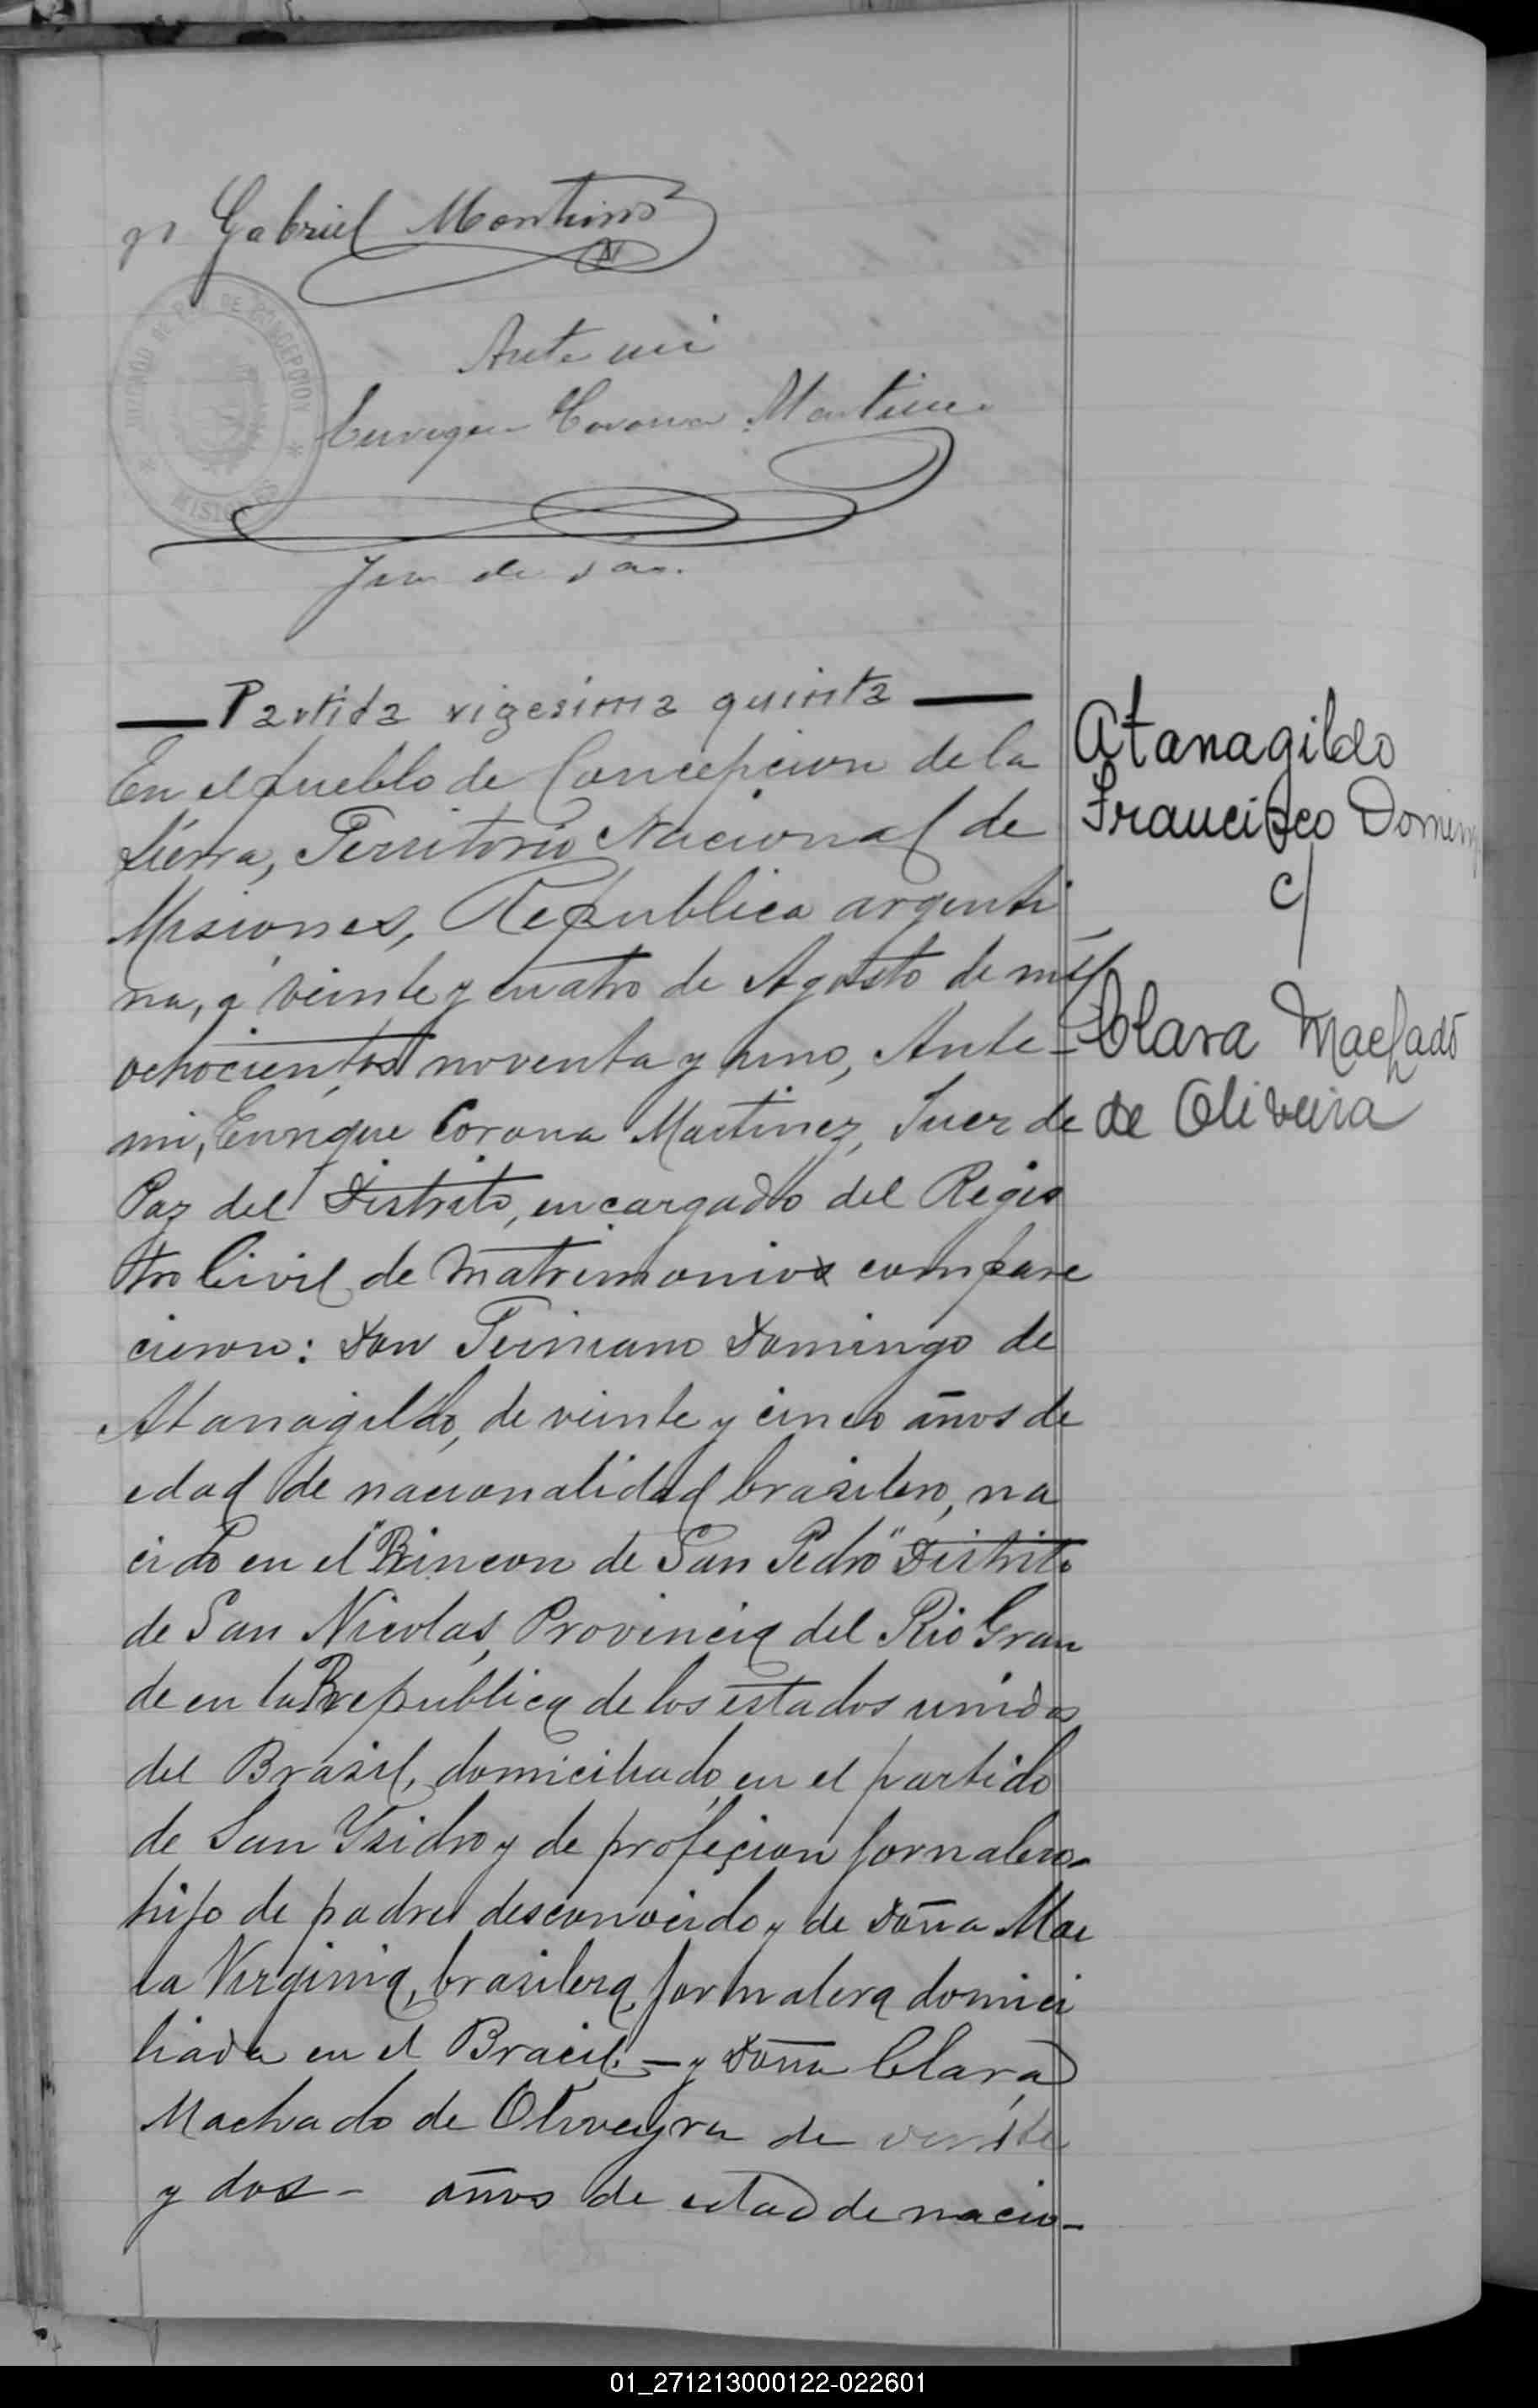 Gabriel Montiero
JUZGADO DE PAZ DE CONCEPCION
* MISIONES *
Ante mi
Enrique Corona Martinez
Juez de Paz.
— Partida vigesima quinta —
En el pueblo de Concepcion de la
Sierra, Territorio Nacional de
Misiones, Republica argenti
na, a veinte y cuatro de Agosto de mil
ochocientos noventa y uno, Ante
mi, Enrique Corona Martinez, Juez de
Paz del Distrito, encargado del Regis
tro Civil de Matrimonios compare
cieron: Don Domingo de
Atanagildo, de veinte y cinco años de
edad de nacionalidad brasilero, na
cido en el "Rincon de San Pedro" Distrito
de San Nicolas, Provincia del Rio Gran
de en la Republica de los estados unidos
del Brasil, domiciliado en el partido
de San Ysidro y de profeçion jornalero-
hijo de padre desconocido y de Doña
Virginia, brasilera, jornalera domici
liada en el Bracil. — y Doña Clara
Machado de Oliveyra de veinte
y dos - años de edad de nacio-
Atanagildo
Francisco Doming
c/
Clara Machado
de Oliveira
01_271213000122-022601